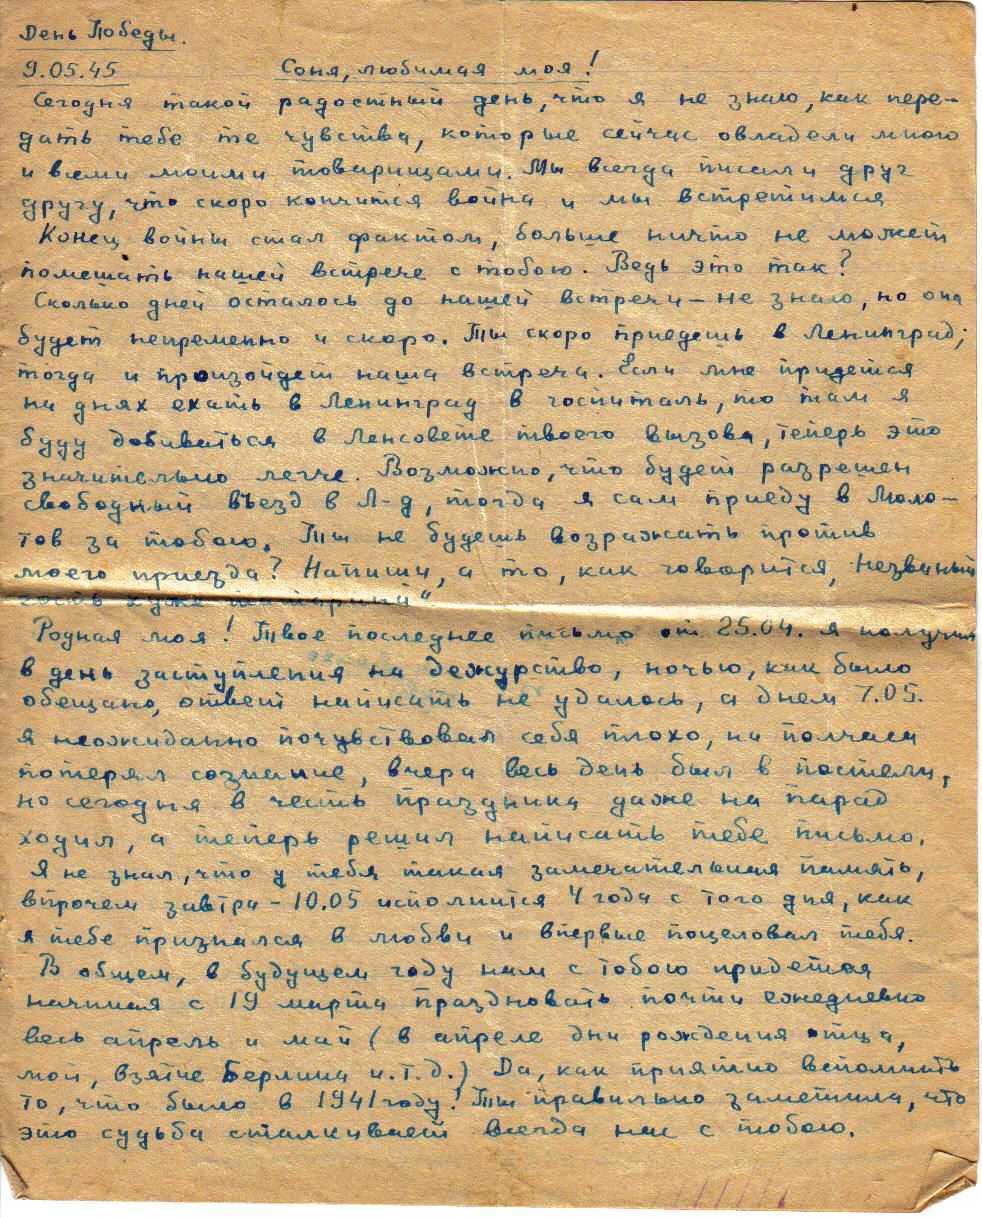 День Победы.
9.05.45 Соня, любимая моя!
Сегодня такой радостный день, что я не знаю, как пере-
дать тебе те чувства, которые сейчас овладели мною
и всеми моими товарищами. Мы всегда писали друг
другу, что скоро кончится война и мы встретимся
Конец войны стал фактом, больше ничто не может
помешать нашей встрече с тобою. Ведь это так?
Сколько дней осталось до нашей встречи – не знаю, но она
будет непременно и скоро. Ты скоро приедешь в Ленинград;
тогда и произойдет наша встреча. Если мне придется
на днях ехать в Ленинград в госпиталь, то там я
буду добиваться в Ленсовете твоего вызова, теперь это
значительно легче. Возможно, что будет разрешен
свободный въезд в Л-д, тогда я сам приеду в Моло-
тов за тобою. Ты не будешь возражать против
моего приезда? Напиши, а то, как говорится, незваный
гость хуже татарина"
Родная моя! Твое последнее письмо от 25.04. я получил
в день заступления на дежурство, ночью, как было
обещано, ответ написать не удалось, а днем 7.05.
я неожиданно почувствовал себя плохо, на полчаса
потерял сознание, вчера весь день был в постели,
но сегодня в честь праздника даже на парад
ходил, а теперь решил написать тебе письмо.
Я не знал, что у тебя такая замечательная память,
впрочем завтра – 10.05 исполнится 4 года с того дня, как
я тебе признался в любви и впервые поцеловал тебя.
В общем, в будущем году нам с тобою придется
начиная с 19 марта праздновать почти ежедневно
весь апрель и май (в апреле дни рождения отца,
мой, взятие Берлина и.т.д.) Да, как приятно вспомнить
то, что было в 1941 году! Ты правильно заметила, что
это судьба сталкивает всегда нас с тобою.